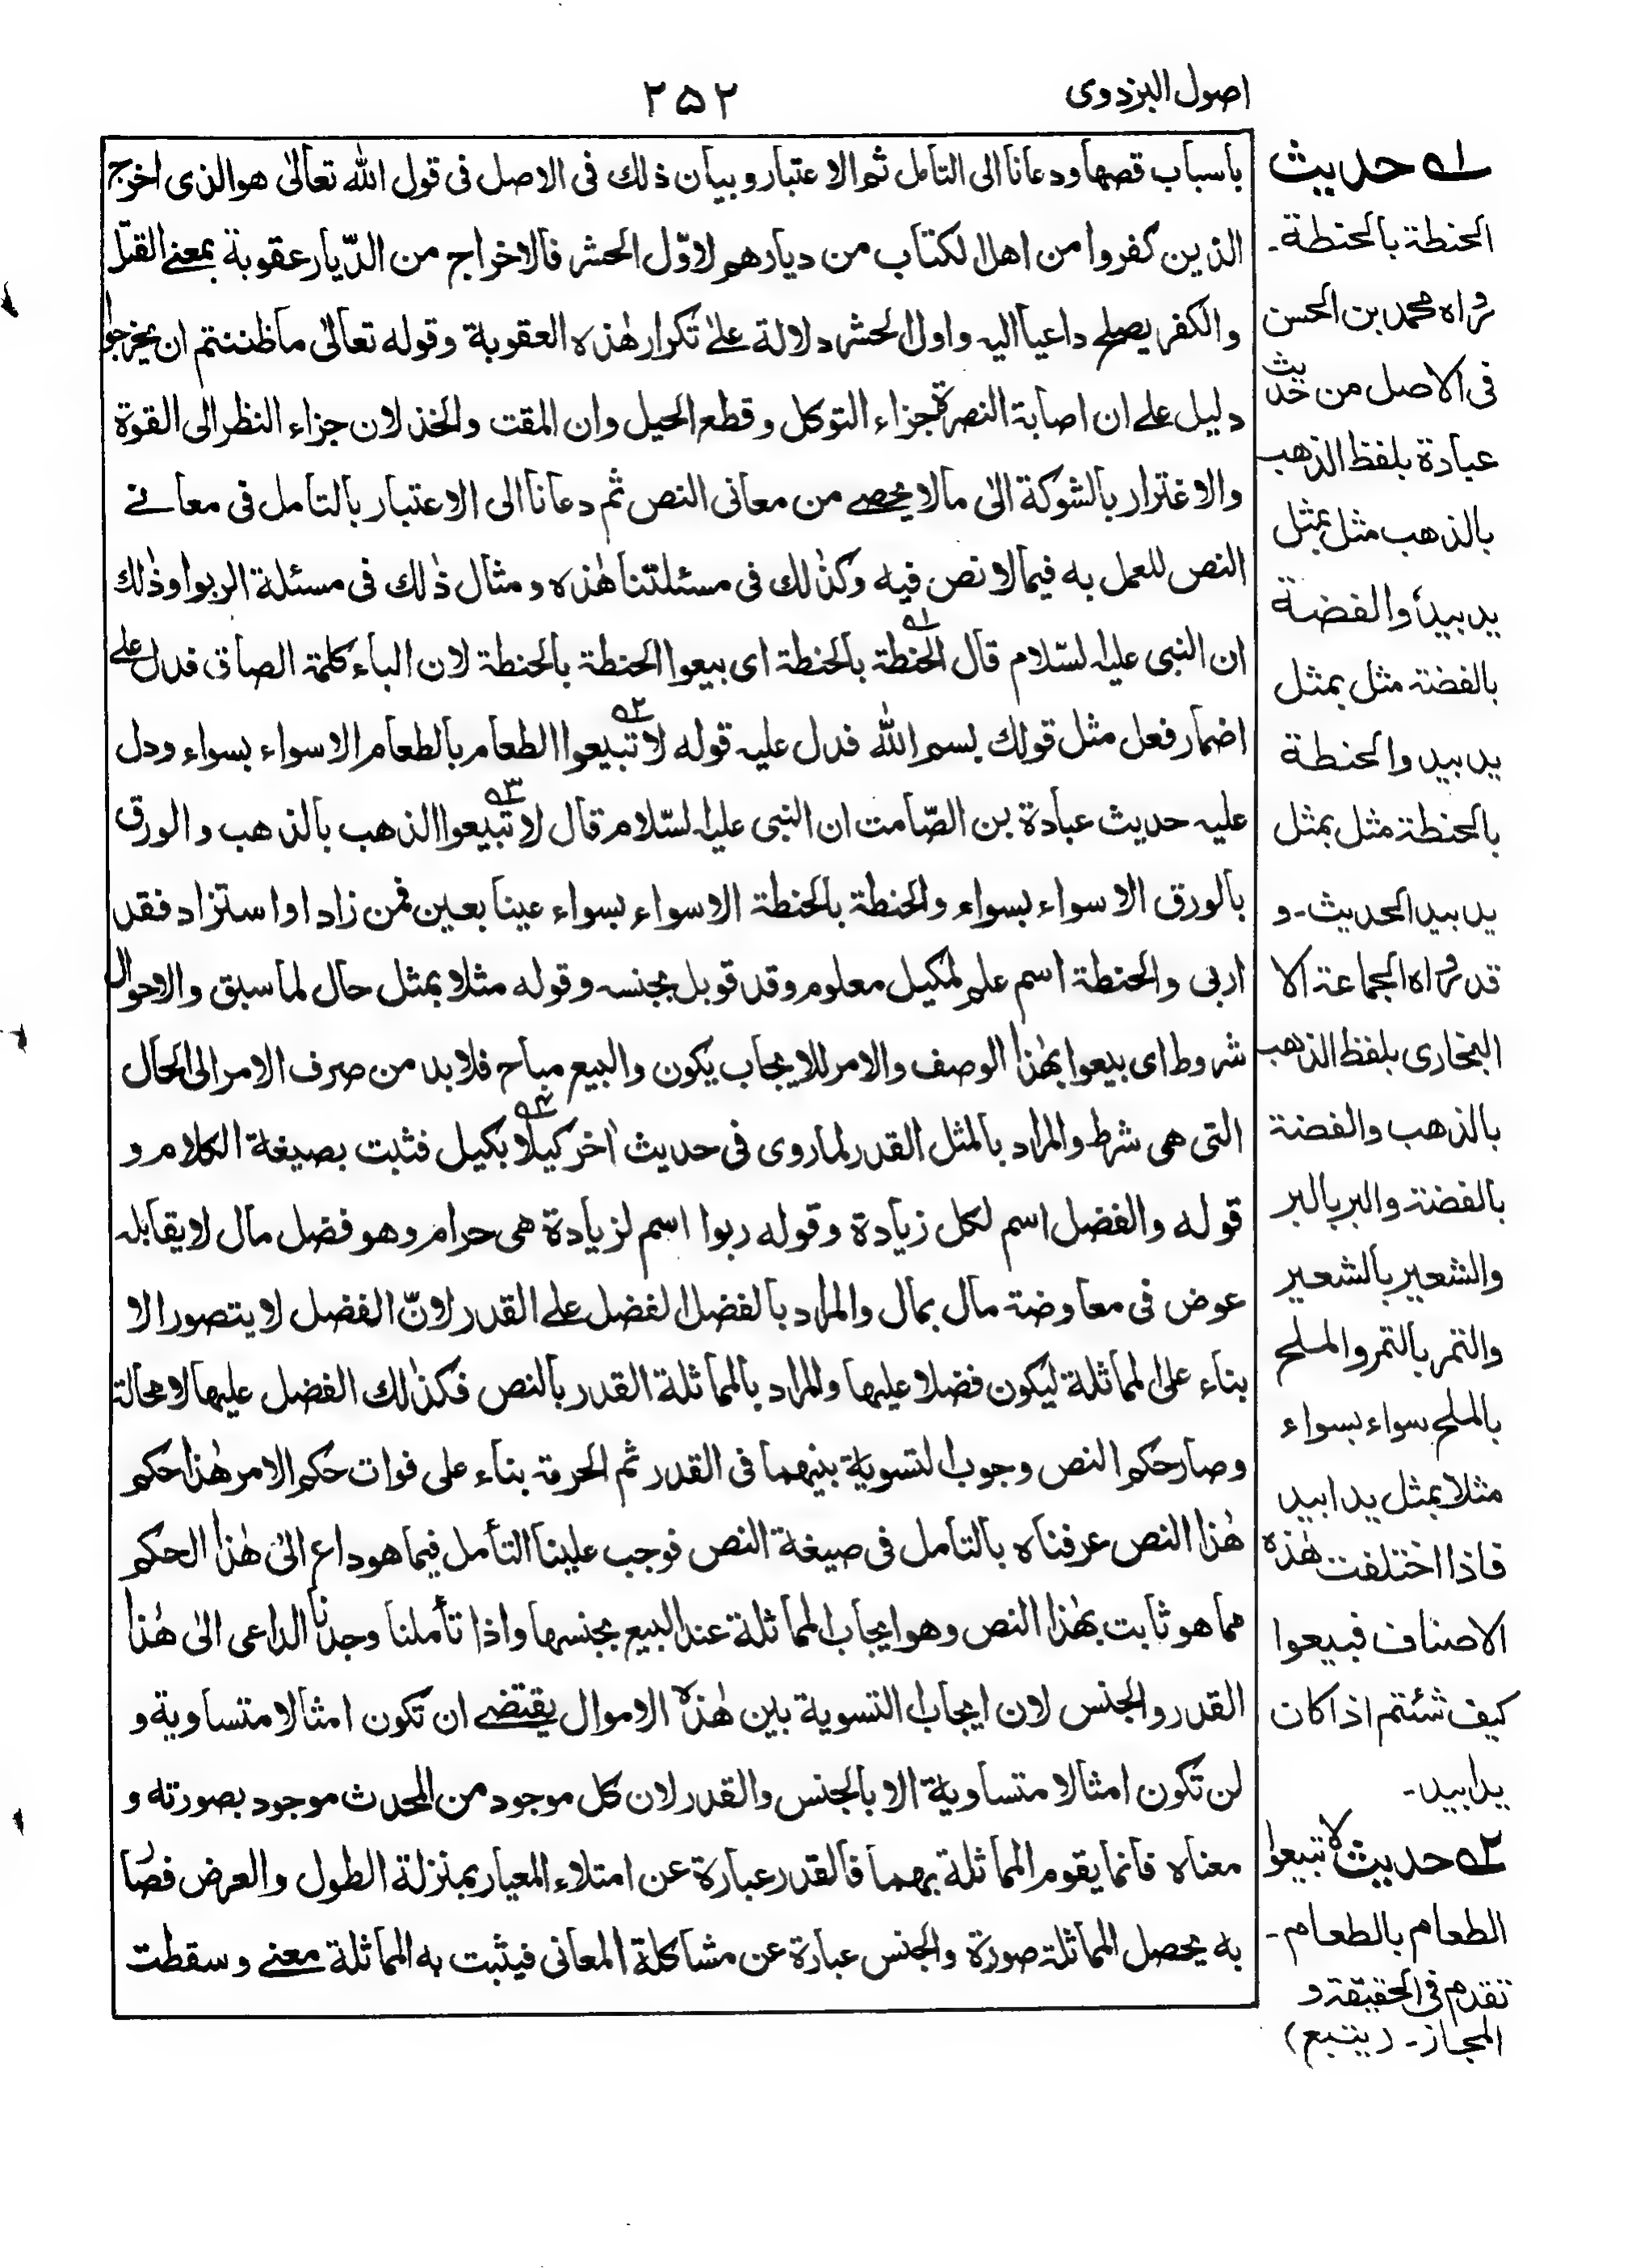 اصول البزدوی
۲۵۲
باسباب قصها ودعانا الى التامل ثم الاعتبار وبيان ذلك فى الاصل فى قول الله تعالىٰ هوالذى اخرج
الذين كفروا من اهل الكتاب من ديارهم لاوّل الحشر فالاخراج من الدّيار عقوبة بمعنے القتل
والكفر يصلح داعيا اليه واول الحشر دلالة علىٰ تكرار هٰذه العقوبة وقوله تعالىٰ ماظننتم ان يخرجوا
دليل علے ان اصابة النصرة جزاء التوكل وقطع الحيل وان المقت والخذلان جزاء النظر الى القوة
والاغترار بالشوكة الىٰ مالا يحصے من معانى النص ثم دعانا الى الاعتبار بالتامل فى معانے
النص للعمل به فيما لا نص فيه وكذٰلك فى مسئلتنا هٰذه ومثال ذٰلك فى مسئلة الربوا وذٰلك
ان النبى عليه السّلام قال الحنطة بالحنطة اى بيعوا الحنطة بالحنطة لان الباء كلمة الصاق فدل علے
اضمار فعل مثل قولك بسم الله فدل عليه قوله لا تبيعوا الطعام بالطعام الا سواء بسواء ودل
عليه حديث عبادة بن الصّامت ان النبى عليه السّلام قال لا تبيعوا الذهب بالذهب والورق
بالورق الا سواء بسواء والحنطة بالحنطة الا سواء بسواء عينا بعين فمن زاد او استزاد فقد
اربى والحنطة اسم علم لمكيل معلوم وقد قوبل بجنسه وقوله مثلا بمثل حال لما سبق والاحوال
شروط اى بيعوا بهٰذا الوصف والامر للايجاب يكون والبيع مباح فلا بد من صرف الامر الى الحال
التى هى شرط والمراد بالمثل القدر لما روى فى حديث اٰخر كيلا بكيل فثبت بصيغة الكلام و
قوله والفضل اسم لكل زيادة وقوله ربوا اسم لزيادة هى حرام وهو فضل مال لا يقابله
عوض فى معاوضة مال بمال والمراد بالفضل الفضل علے القدر لانّ الفضل لا يتصور الا
بناء على المماثلة ليكون فضلا عليها والمراد بالمماثلة القدر بالنص فكذٰلك الفضل عليها لا محالة
وصار حكم النص وجوب التسوية بينهما فى القدر ثم الحرمة بناء على فوات حكم الامر هٰذا حكم
هٰذا النص عرفناه بالتامل فى صيغة النص فوجب علينا التأمل فيما هو داع الىٰ هٰذا الحكم
مما هو ثابت بهٰذا النص وهو ايجاب المماثلة عند البيع بجنسها واذا تأملنا وجدنا الداعى الىٰ هٰذا
القدر والجنس لان ايجاب التسوية بين هٰذه الاموال يقتضے ان تكون امثالا متساوية و
لن تكون امثالا متساوية الا بالجنس والقدر لان كل موجود من المحدث موجود بصورته و
معناه فانما يقوم المماثلة بهما فالقدر عبارة عن امتلاء المعيار بمنزلة الطول والعرض فصار
به يحصل المماثلة صورة والجنس عبارة عن مشاكلة المعانى فيثبت به المماثلة معنے وسقطت
۱ حديث
الحنطة بالحنطة۔
رواه محمد بن الحسن
فى الاصل من حديث
عبادة بلفظ الذهب
بالذهب مثل بمثل
يد بيد والفضة
بالفضة مثل بمثل
يد بيد والحنطة
بالحنطة مثل بمثل
يد بيد الحديث۔ و
قد رواه الجماعة الا
البخارى بلفظ الذهب
بالذهب والفضة
بالفضة والبر بالبر
والشعير بالشعير
والتمر بالتمر والملح
بالملح سواء بسواء
مثلا بمثل يدا بيد
فاذا اختلفت هٰذه
الاصناف فبيعوا
كيف شئتم اذا كان
يدا بيد۔
۲ حديث لا تبيعوا
الطعام بالطعام۔
تقدم فى الحقيقة و
المجاز۔ (يتبع)